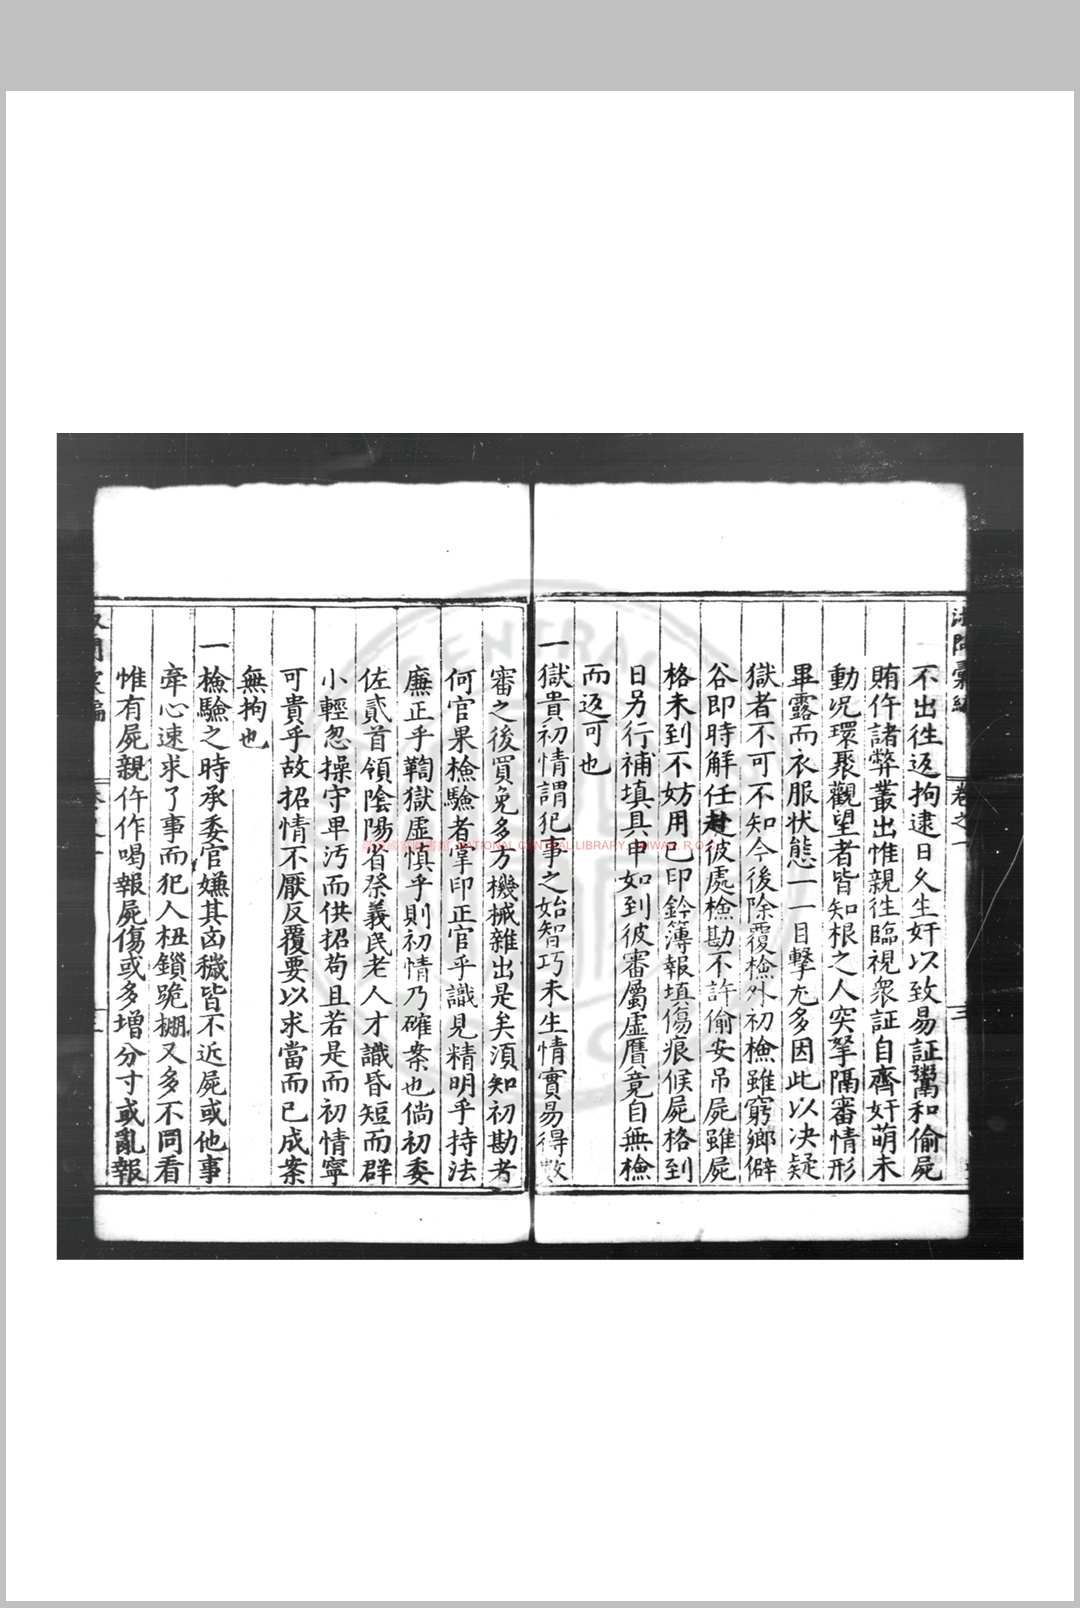 不出徃返拘逮日久生奸以致易証鬻和偷屍
賄仵諸弊叢出惟親徃臨視衆証自齊奸萌未
動况環聚觀望者皆知根之人突拏隔審情形
畢露而衣服状態一一目擊尤多因此以决疑
獄者不可不知今後除覆檢外初檢雖窮鄉僻
谷即時解任赴彼處檢勘不許偷安吊屍雖屍
格未到不妨用己印鈐簿報填傷痕候屍格到
日另行補填具申如到彼審屬虛贋竟自無檢
而返可也
一獄貴初情謂犯事之始智巧未生情實易得數
審之後買免多方機械雜出是矣須知初勘者
何官果檢驗者掌印正官乎識見精明乎持法
廉正乎鞫獄虛慎乎則初情乃確案也倘初委
佐貳首領陰陽省祭義民老人才識昏短而群
小輕忽操守卑汚而供招苟且若是而初情寧
可貴乎故招情不厭反覆要以求當而已成案
無拘也
一檢驗之時承委官嫌其凶穢皆不近屍或他事
牽心速求了事而犯人杻鎖跪棚又多不同看
惟有屍親仵作喝報屍傷或多增分寸或亂報
卷之一
三
NATIONAL CENTRAL LIBRARY, TAIWAN, R.O.C.